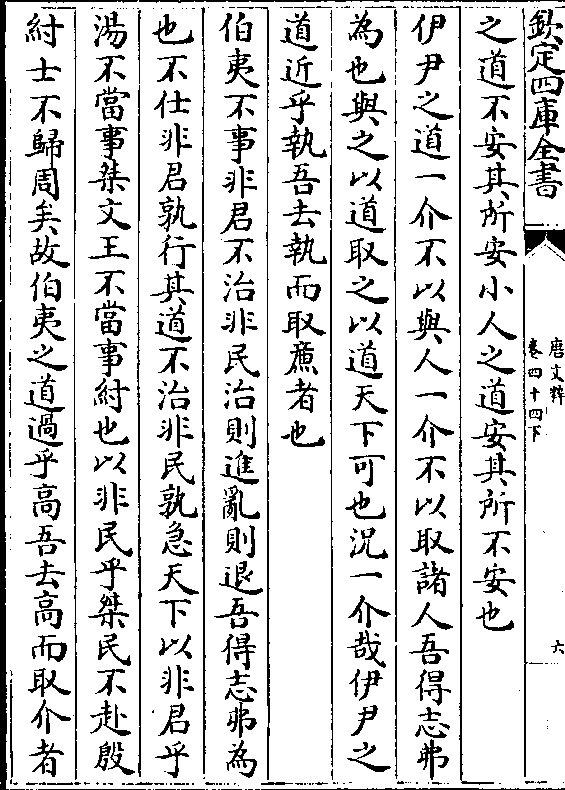 欽定四庫全書
唐文粹
卷四十四下
六
之道不安其所安小人之道安其所不安也
伊尹之道一介不以與人一介不以取諸人吾得志弗
為也與之以道取之以道天下可也況一介哉伊尹之
道近乎執吾去執而取廉者也
伯夷不事非君不治非民治則進亂則退吾得志弗為
也不仕非君孰行其道不治非民孰急天下以非君乎
湯不當事桀文王不當事紂也以非民乎桀民不赴殷
紂士不歸周矣故伯夷之道過乎高吾去高而取介者